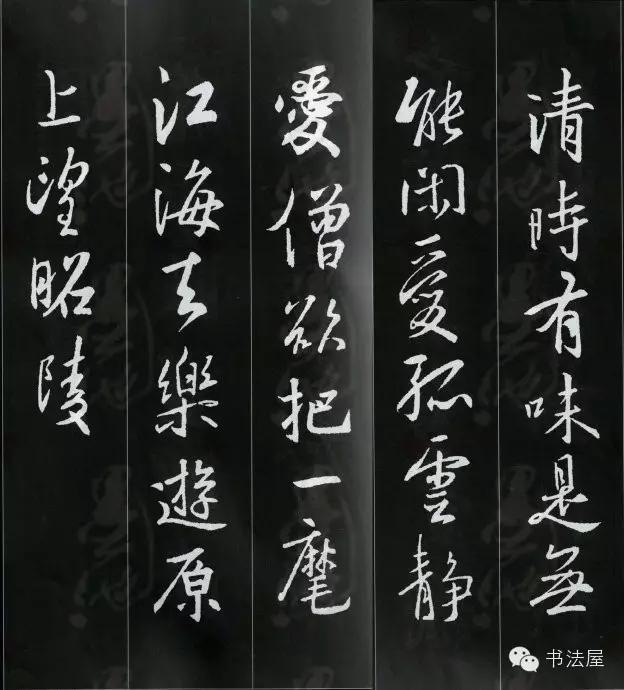 清時有味是無
能閑愛孤雲靜
愛僧欲把一麾
江海去樂遊原
上望昭陵
书法屋